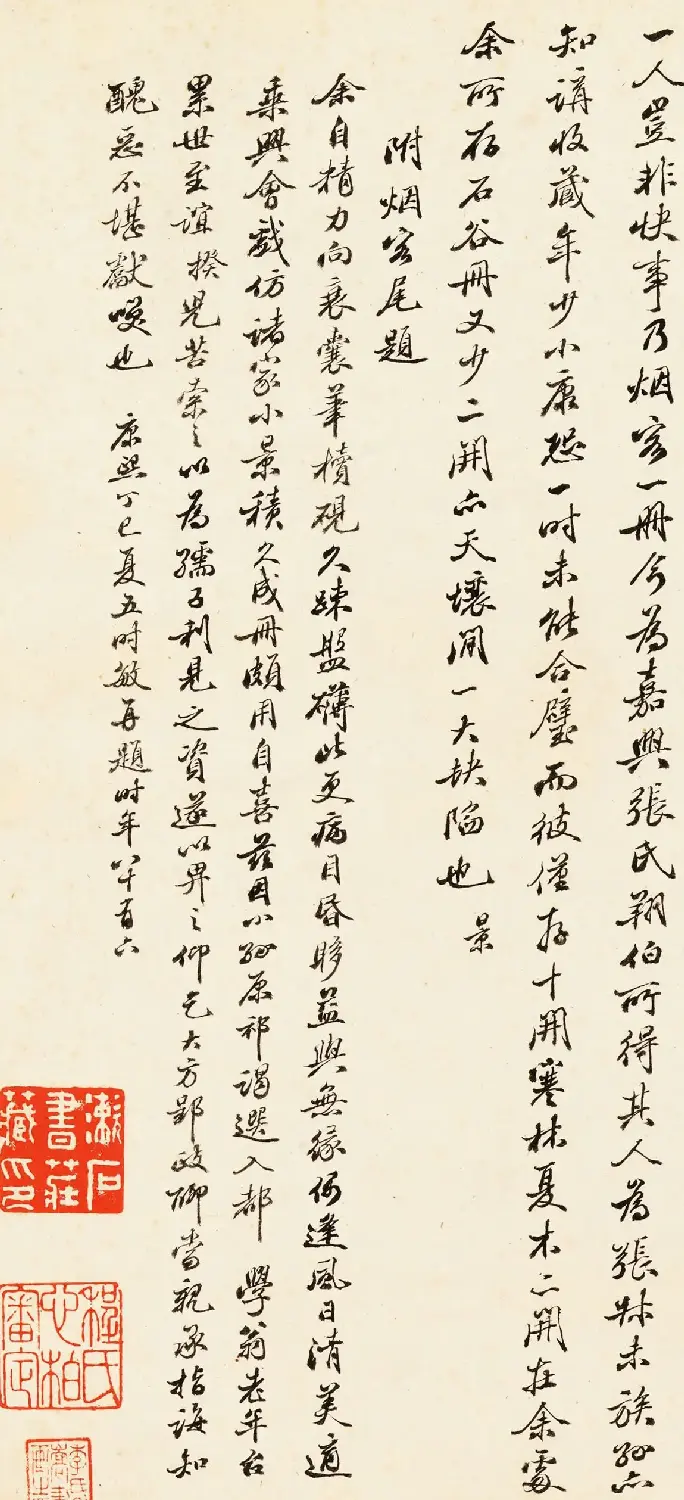 一人豈非快事乃烟客一冊今為嘉興張氏翔伯所得其人為張叔未族孫亦
知講收藏年少小康恐一时未能合璧而彼僅存十開寒林夏木二開在余處
余所存石谷冊又少二開亦天壤間一大缺陷也 景
附烟客尾題
余自精力向衰囊筆櫝硯久疎盤礴此更病目昏眵益與無緣偶逢風日清美適
乘興會戲仿諸家小景積久成冊頗用自喜茲因小孫原祁謁選入都 學翁老年台
累世至誼揆兒苦索之以為孺子利見之資遂以畀之仰乞大方郢政聊當親承指誨知
醜惡不堪獻噗也 康熙丁巳夏五时敏再題时年八十有六
瀨石
書莊
藏印
程氏
心柏
審定